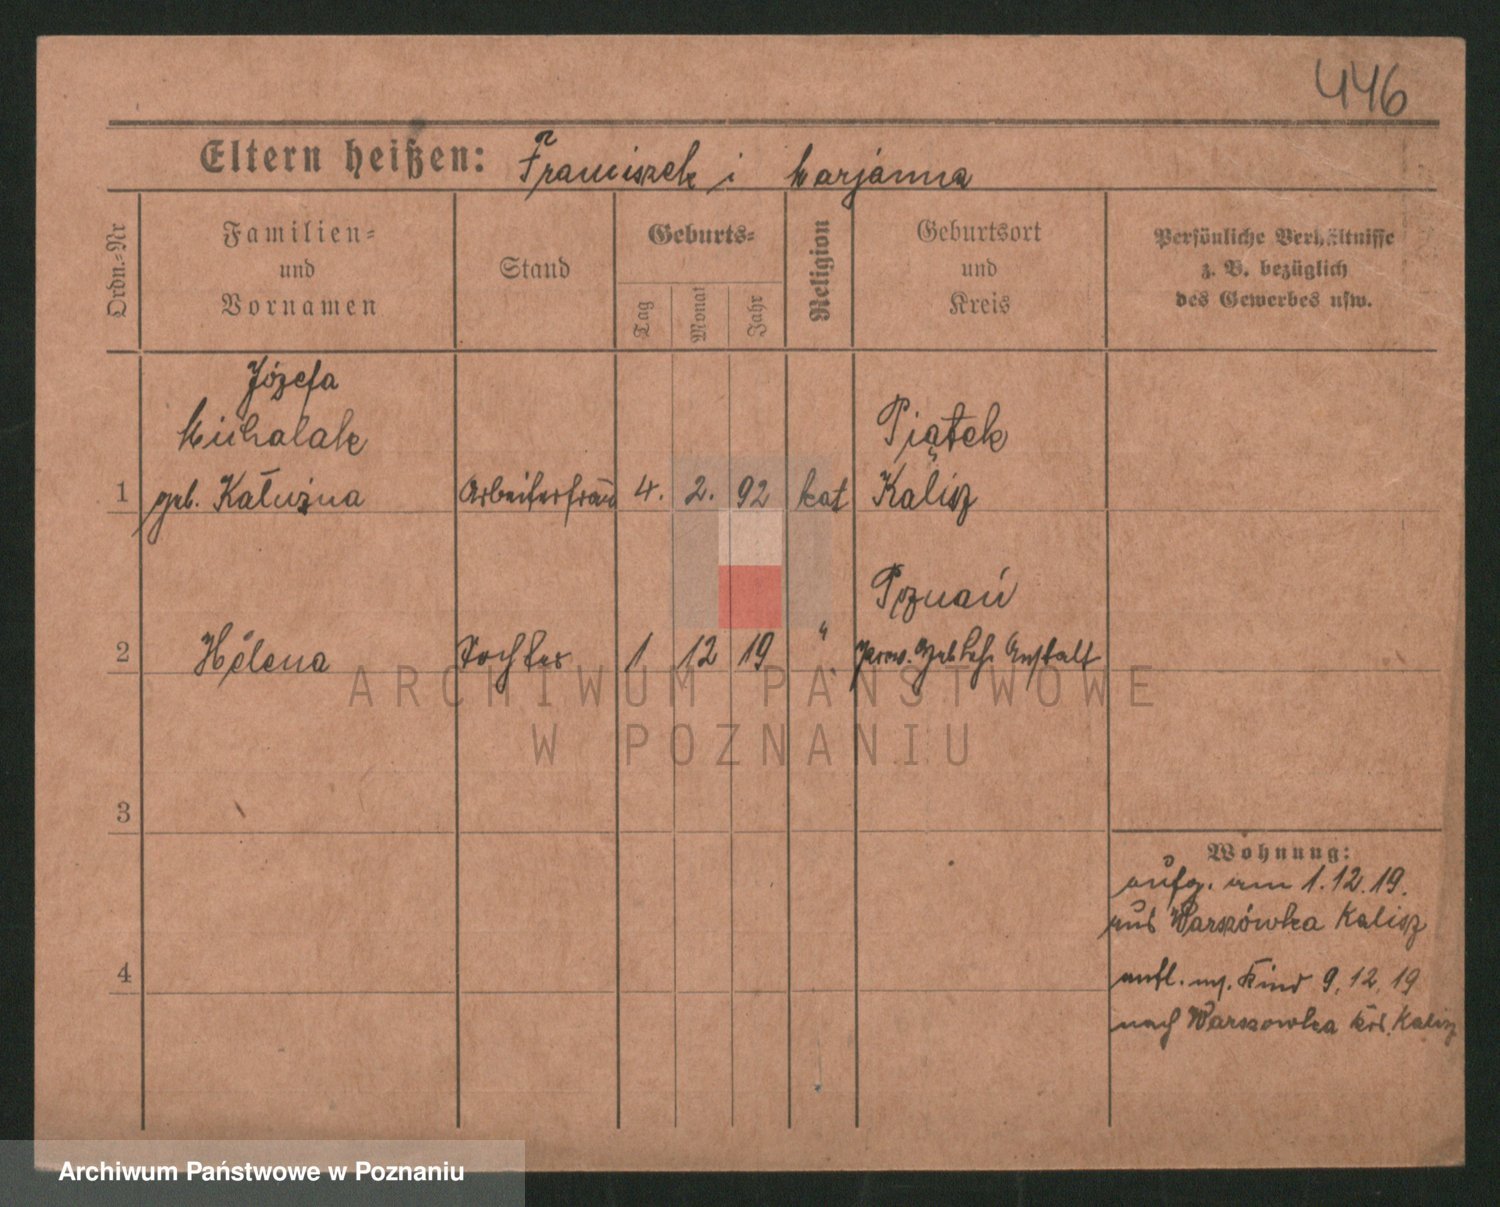 446
Eltern heißen: Franciszek i Marjanna
Ordn.-Nr
Familien-
und
Vornamen
Stand
Geburts-
Tag
Monat
Jahr
Religion
Geburtsort
und
Kreis
Persönliche Verhältnisse
z. B. bezüglich
des Gewerbes usw.
Józefa
Michalak
1 geb. Kałużna Arbeiterfrau 4. 2. 92 kat
Piątek
Kalisz
Poznań
2 Helena Tochter 1 12 19 " Prov. Hebleh. Anstalt
ARCHIWUM PAŃSTWOWE
W POZNANIU
3
4
Wohnung:
aufg. am 1.12.19.
aus Warszówka Kalisz
entl. m. Kind 9.12.19
nach Warszowka Krs. Kalisz
Archiwum Państwowe w Poznaniu